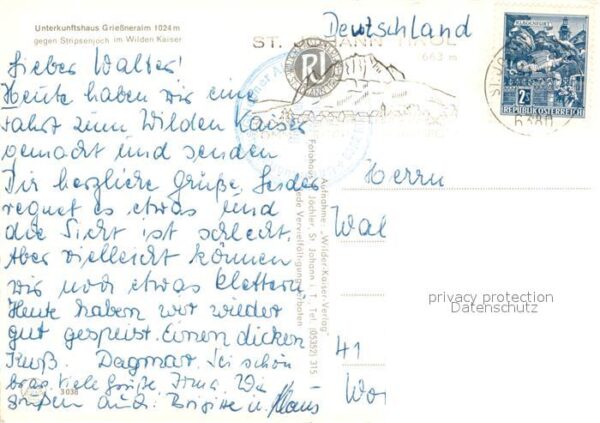 Unterkunftshaus Grießneralm 1024 m
gegen Stripsenjoch im Wilden Kaiser
Deutschland
ST. JOHANN TIROL
663 m
KLAGENFURT
2S
REPUBLIK ÖSTERREICH
6380
Lieber Walter!
Heute haben wir eine
Fahrt zum Wilden Kaiser
gemacht und senden
Dir herzliche Grüße. Leider
regnet es etwas und
die Sicht ist schlecht.
Aber vielleicht können
wir noch etwas klettern
Heute haben wir wieder
gut gespeist. Einen dicken
Kuß. Dagmar. Sei schön
brav. Viele Grüße Irma. Wir
grüßen auch: Brigitte u. Klaus
3038
Aufnahme "Wilder-Kaiser-Verlag"
Fotohaus Jöchler, St. Johann i. T., Tel. (05352) 315
jede Vervielfältigung verboten
Herrn
Wal
41
Wo
privacy protection
Datenschutz